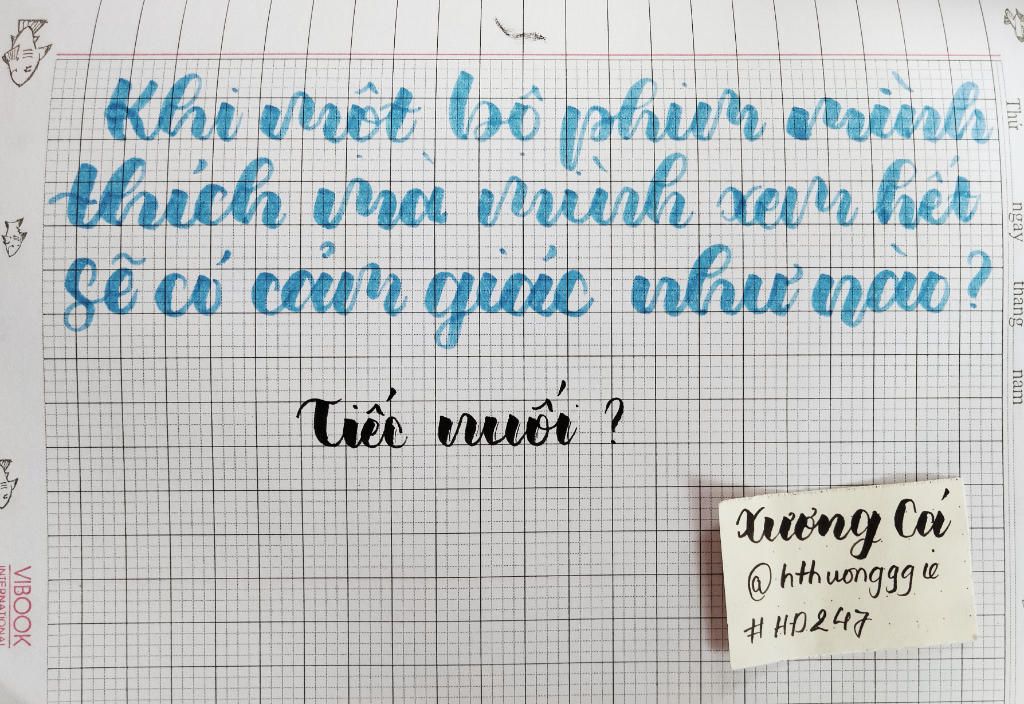 Khi một bộ phim mình
thích mà mình xem hết
sẽ có cảm giác như nào?
Tiếc nuối ?
Xương Cá
@hthuongggie
#HD247
Thứ ngày tháng năm
VIBOOK
INTERNATIONAL